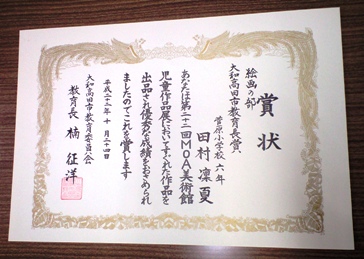 賞状
絵画の部
大和高田市教育長賞
菅原小学校 六年
田村 凜夏
あなたは第二十二回MOA美術館
児童作品展においてすぐれた作品を
出品され優秀な成績をおさめられ
ましたのでこれを賞します
平成二十三年十月二十四日
大和高田市教育委員会
教育長 楠 征洋